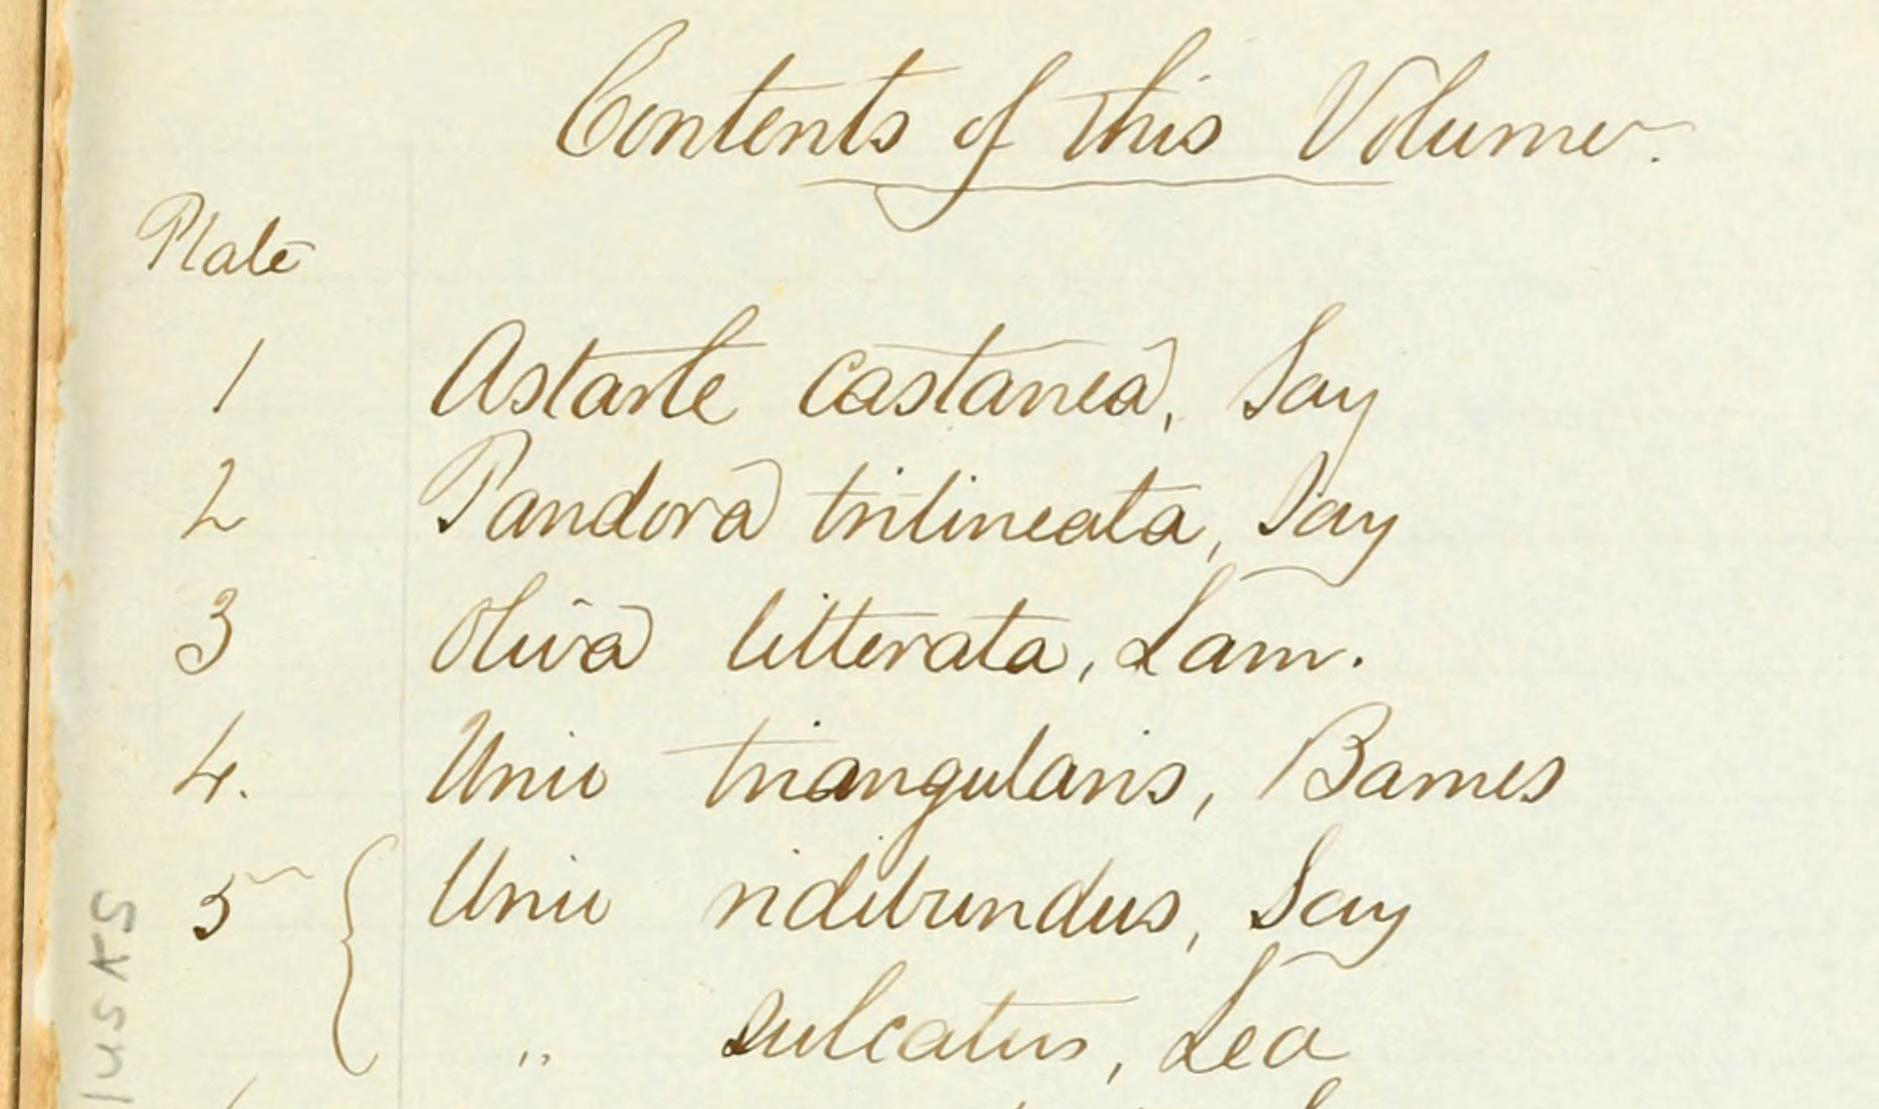 Contents of this Volume.
Plate
1 Astarte castanea, Say
2 Pandora trilineata, Say
3 Oliva litterata, Lam.
4. Unio triangularis, Barnes
5 { Unio ridibundus, Say
" sulcatus, Lea